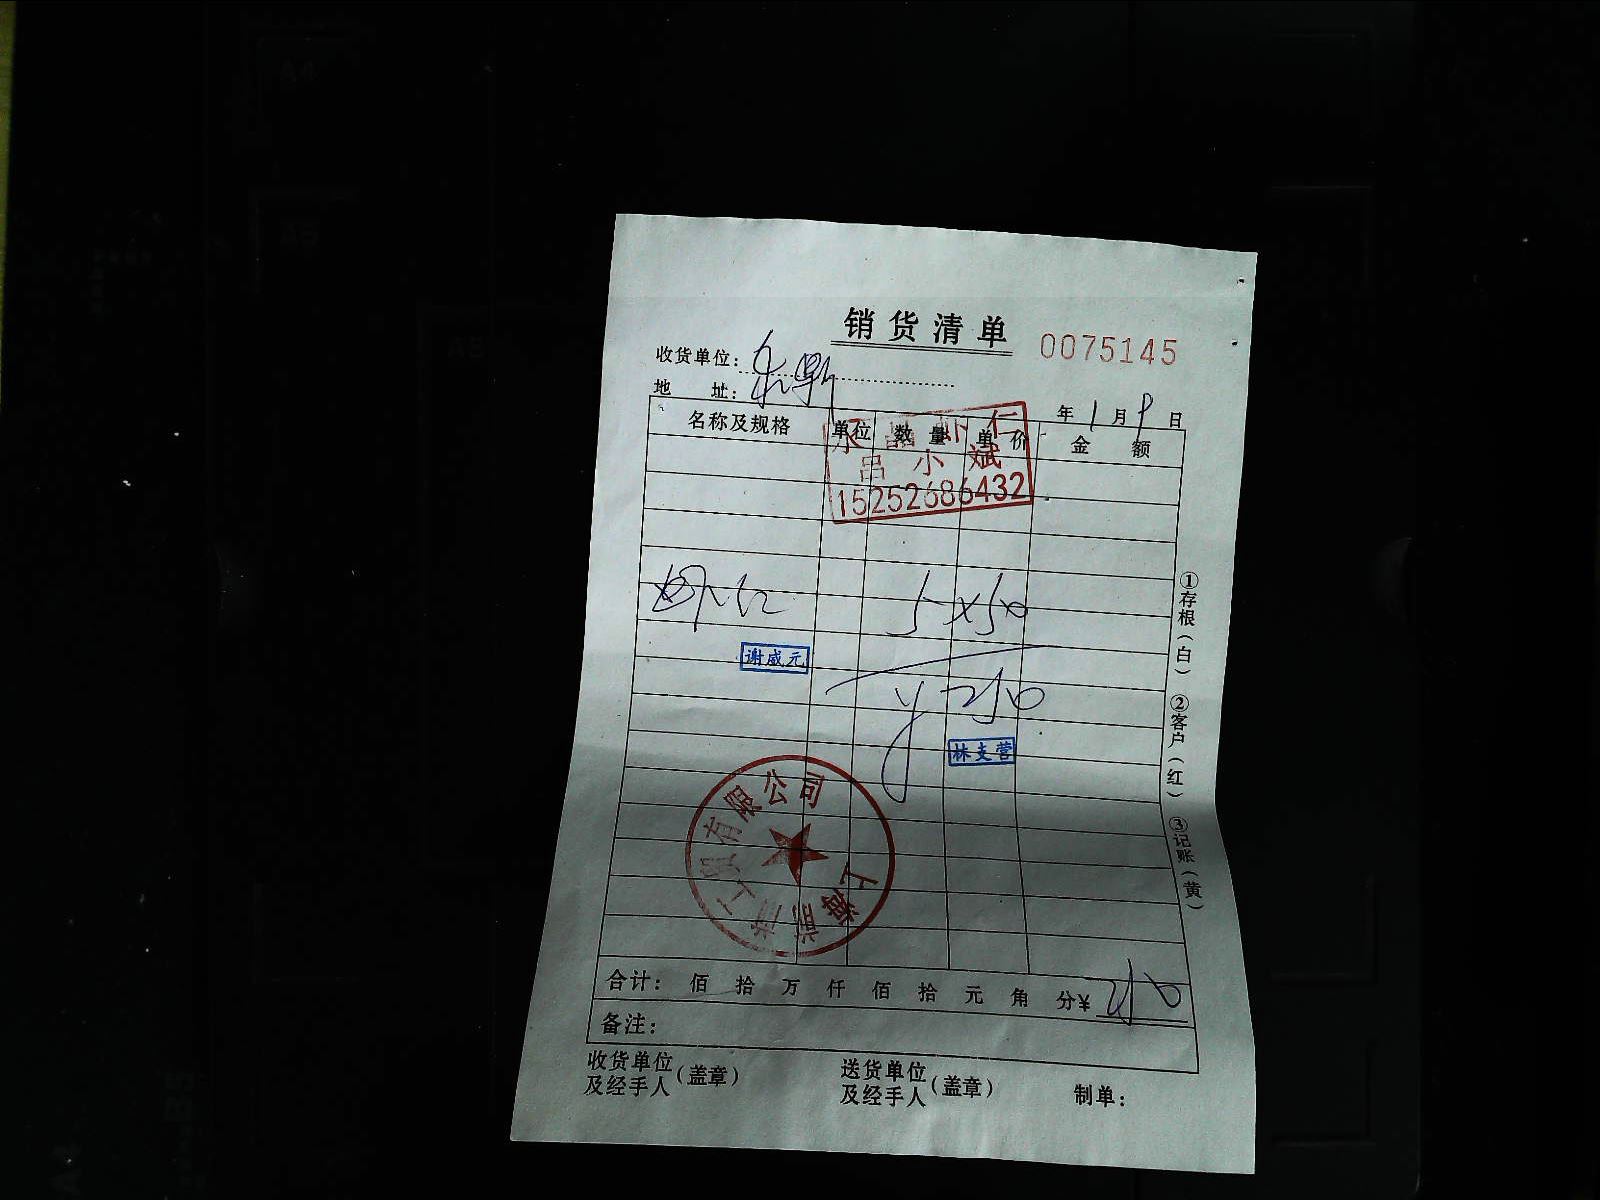 销货清单 0075145
收货单位：
地 址：
年 1 月 9 日
名称及规格 单位 数量 单价 金额
永昌虾仁
吕小斌
15252686432
虾仁 5×50
谢威元
¥250
林支营
有限公司
上海
合计： 佰 拾 万 仟 佰 拾 元 角 分¥ 250
备注：
收货单位及经手人（盖章） 送货单位及经手人（盖章） 制单：
①存根（白） ②客户（红） ③记账（黄）